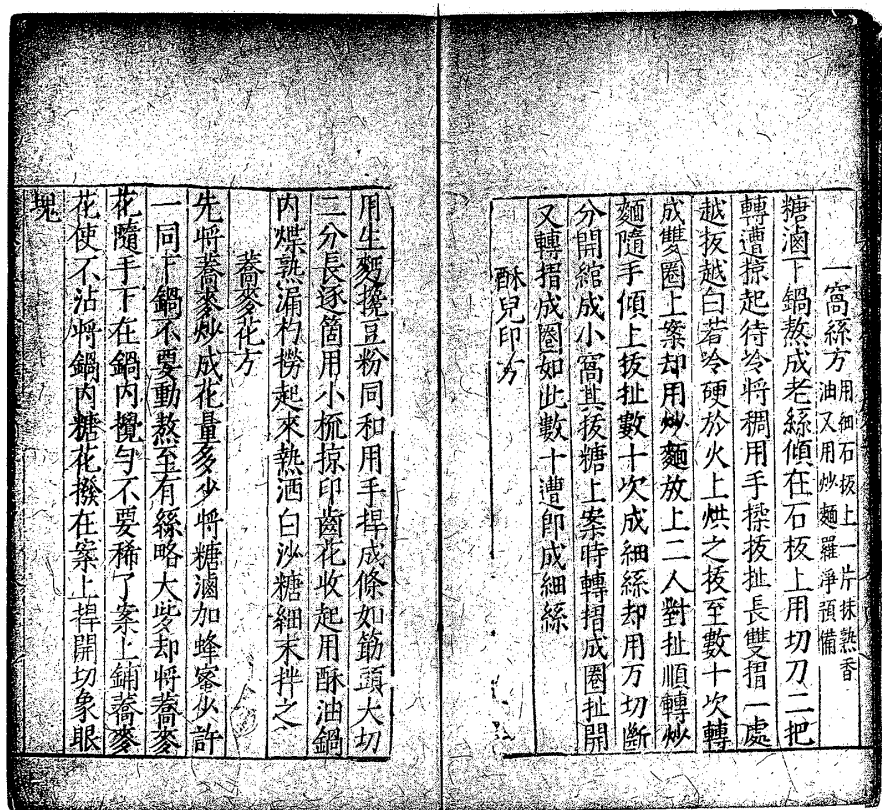 一窩絲方 用細石扳上一片抹熟香
油又用炒麵羅淨預備
糖滷下鍋熬成老絲傾在石板上用切刀二把
轉遭掠起待冷將稠用手揉拔扯長雙摺一處
越拔越白若冷硬於火上烘之拔至數十次轉
成雙圈上案却用炒麵放上二人對扯順轉炒
麵隨手傾上拔扯數十次成細絲却用刀切斷
分開綰成小窩其拔糖上案時轉摺成圈扯開
又轉摺成圈如此數十遭即成細絲
酥兒印方
用生麵攙豆粉同和用手捍成條如筯頭大切
二分長逐箇用小梳掠印齒花收起用酥油鍋
內煠熟漏杓撈起來熱洒白沙糖細末拌之
蕎麥花方
先將蕎麥炒成花量多少將糖滷加蜂蜜少許
一同下鍋不要動熬至有絲略大些却將蕎麥
花隨手下在鍋內攪勻不要稀了案上鋪蕎麥
花使不沾將鍋內糖花撥在案上捍開切象眼
塊